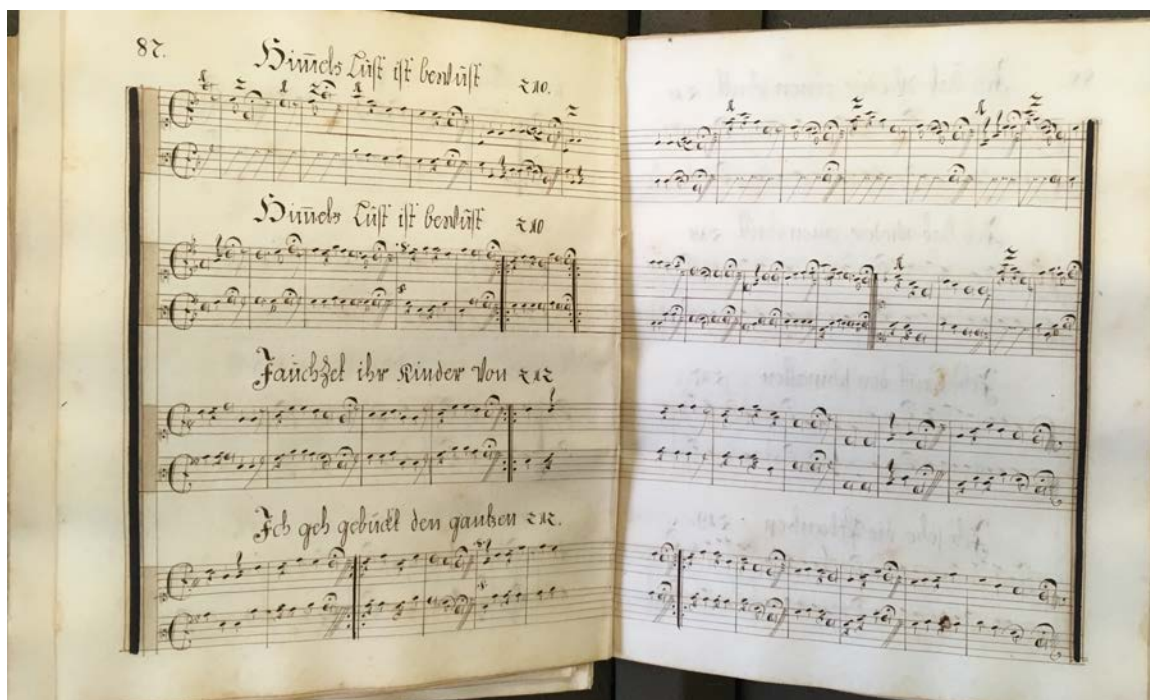 87.
Him̄els Lust ist bewust 210.
Him̄els Lust ist bewust 210
Jauchzet ihr Kinder von 212
Ich geh gebückt den gantzen 212.